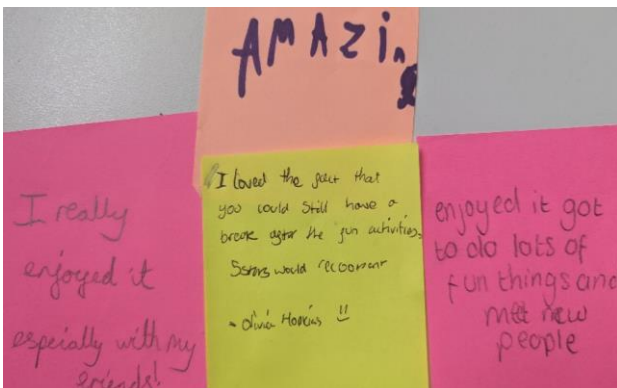 AMAZing
I really
enjoyed it
especially with my
friends!
I loved the fact that
you could still have a
break after the fun activities,
5stars would recooment
- Olivia Hopkins
enjoyed it got
to do lots of
fun things and
met new
people